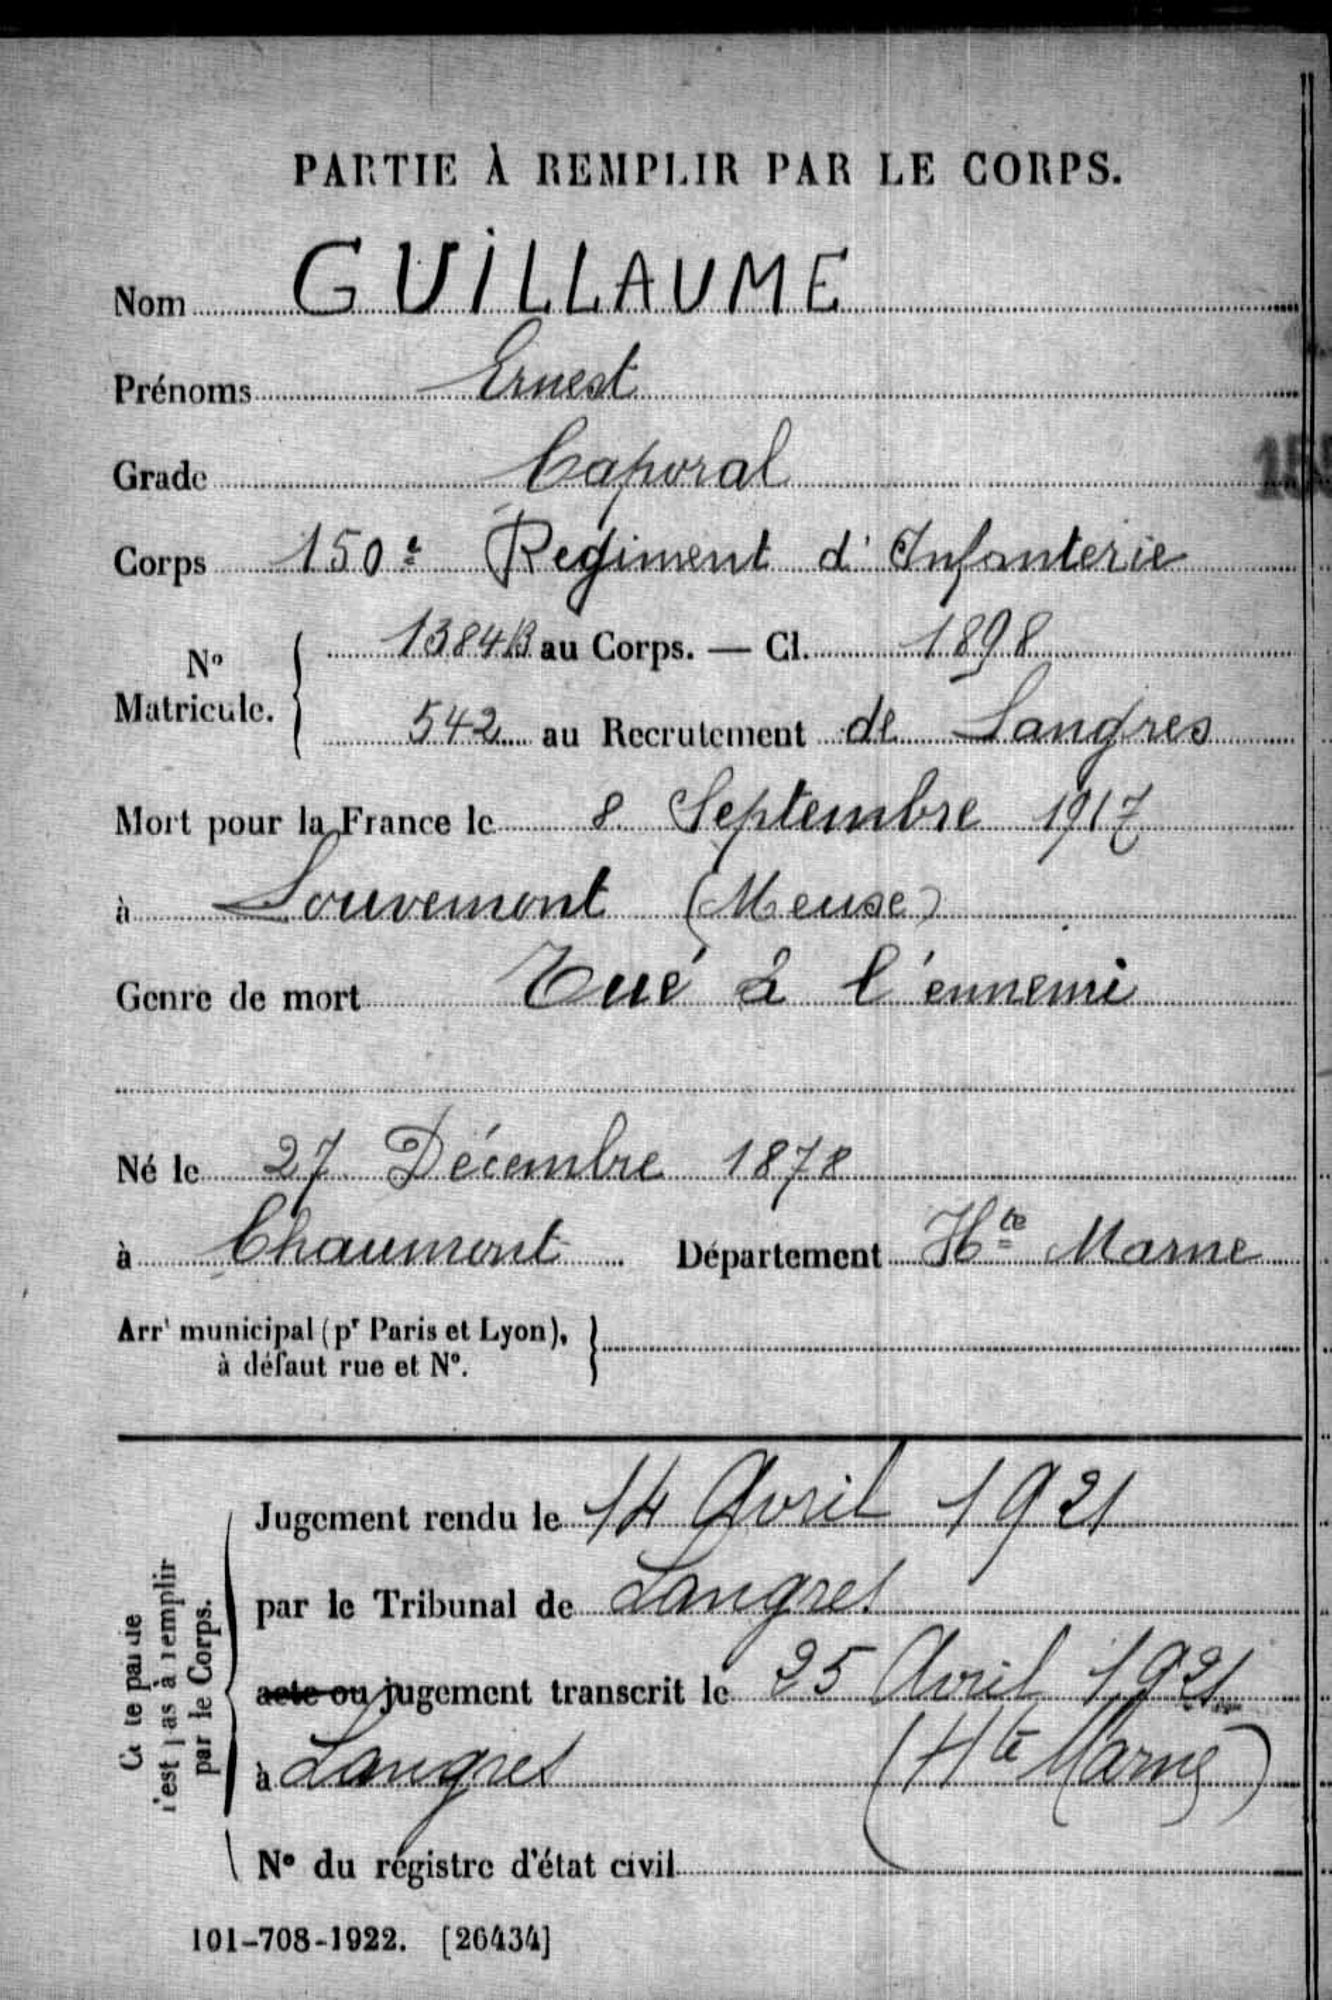 PARTIE À REMPLIR PAR LE CORPS.
Nom GUILLAUME
Prénoms Ernest
Grade Caporal
Corps 150e Regiment d'Infanterie
No Matricule. { 1384B au Corps. — Cl. 1898
542 au Recrutement de Langres
Mort pour la France le 8 Septembre 1917
à Louvemont (Meuse)
Genre de mort Tué à l'ennemi
Né le 27 Décembre 1878
à Chaumont Département Hte Marne
Arrt municipal (pr Paris et Lyon), }
à défaut rue et No.
Cette partie
n'est pas à remplir
par le Corps.
Jugement rendu le 14 Avril 1921
par le Tribunal de Langres
acte ou jugement transcrit le 25 Avril 1921
à Langres (Hte Marne)
No du registre d'état civil
101-708-1922. [26434]